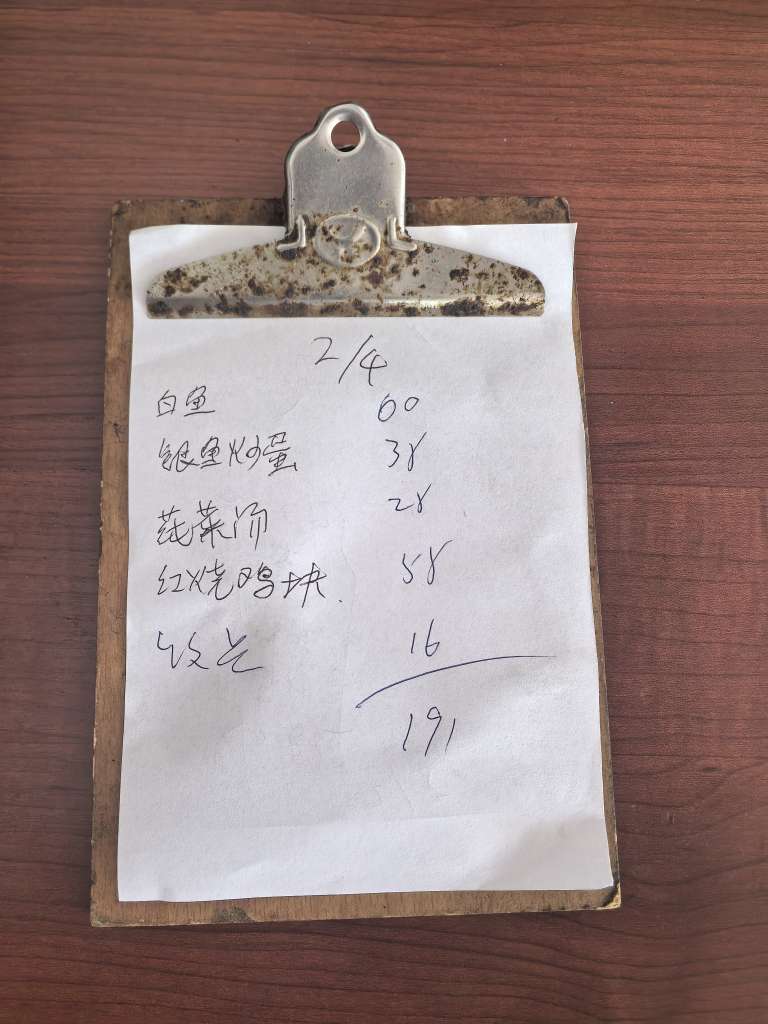 2/4
白鱼 60
银鱼炒蛋 38
莼菜汤 28
红烧鸡块. 58
饭 16
191